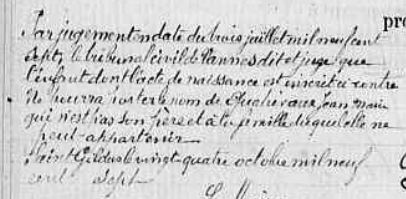 pro
Par jugement en date du trois juillet mil neuf cent
sept, le tribunal civil de Vannes dit et juge que
l'enfant dont l'acte de naissance est inscrit ci-contre
ne pourra porter le nom de Jean Marie
qui n'est pas son père et à la famille duquel elle ne
peut appartenir
Saint Gildas le vingt-quatre octobre mil neuf
cent sept